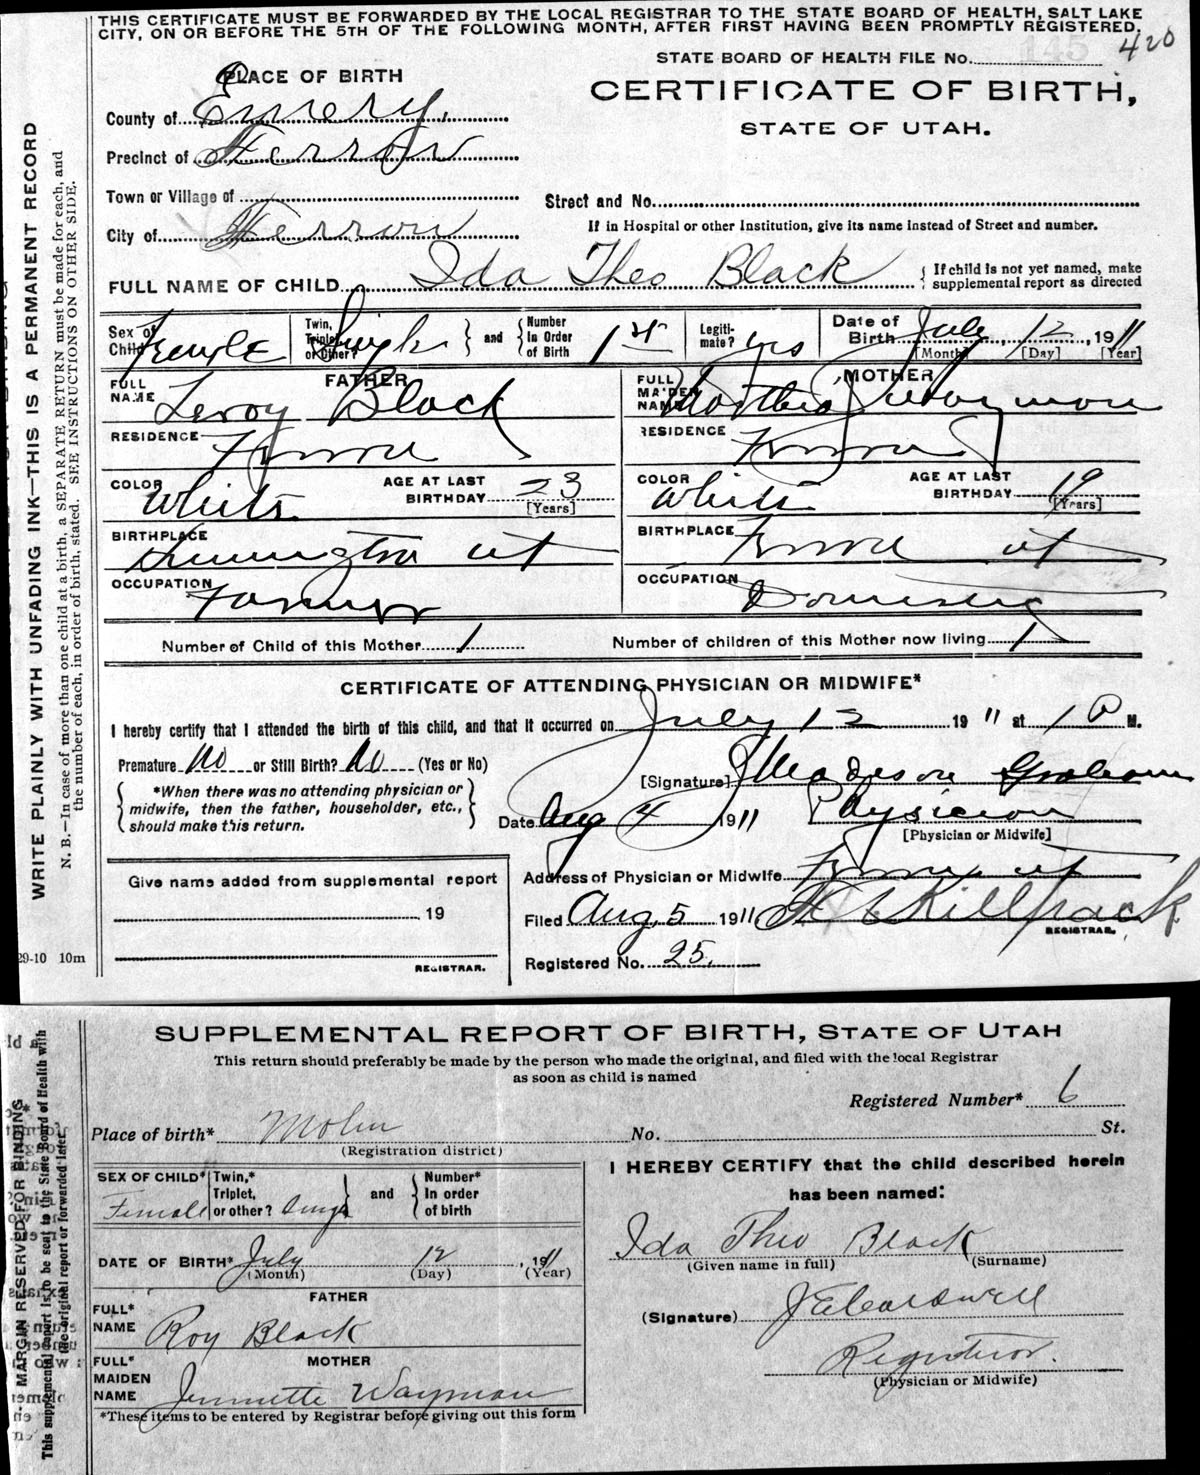 THIS CERTIFICATE MUST BE FORWARDED BY THE LOCAL REGISTRAR TO THE STATE BOARD OF HEALTH, SALT LAKE
CITY, ON OR BEFORE THE 5TH OF THE FOLLOWING MONTH, AFTER FIRST HAVING BEEN PROMPTLY REGISTERED.
420
STATE BOARD OF HEALTH FILE No. 145
PLACE OF BIRTH
CERTIFICATE OF BIRTH,
STATE OF UTAH.
County of Emery.
Precinct of Ferron
Town or Village of
Street and No.
City of Ferron
If in Hospital or other Institution, give its name instead of Street and number.
FULL NAME OF CHILD Ida Theo Black
{ If child is not yet named, make
supplemental report as directed
Sex of Child Female
Twin, Triplet, or Other? Single } and { Number In Order of Birth 1st
Legiti-mate? yes
Date of Birth July 12, 1911
[Month] [Day] [Year]
FATHER
FULL NAME Leroy Black
RESIDENCE Ferron
COLOR White
AGE AT LAST BIRTHDAY 23
[Years]
BIRTHPLACE Huntington ut
OCCUPATION Farmer
MOTHER
FULL MAIDEN NAME Wayman
RESIDENCE Ferron
COLOR White
AGE AT LAST BIRTHDAY 19
[Years]
BIRTHPLACE Ferron ut
OCCUPATION Domestic
Number of Child of this Mother 1
Number of children of this Mother now living 1
CERTIFICATE OF ATTENDING PHYSICIAN OR MIDWIFE*
I hereby certify that I attended the birth of this child, and that it occurred on July 12 1911 at 1 P M.
Premature No or Still Birth? No (Yes or No)
{ *When there was no attending physician or
midwife, then the father, householder, etc.,
should make this return. }
[Signature] Madison Graham
Date Aug 4 1911 Physician
[Physician or Midwife]
Address of Physician or Midwife Ferron ut
Filed Aug, 5 1911 Killpack
REGISTRAR.
Registered No. 25.
Give name added from supplemental report
19
REGISTRAR.
WRITE PLAINLY WITH UNFADING INK—THIS IS A PERMANENT RECORD
N. B.—In case of more than one child at a birth, a SEPARATE RETURN must be made for each, and
the number of each, in order of birth, stated. SEE INSTRUCTIONS ON OTHER SIDE.
29-10 10m
SUPPLEMENTAL REPORT OF BIRTH, STATE OF UTAH
This return should preferably be made by the person who made the original, and filed with the local Registrar
as soon as child is named
Registered Number* 6
Place of birth* Molen No. St.
(Registration district)
SEX OF CHILD* Female
Twin,* Triplet, or other? Single } and { Number* In order of birth
DATE OF BIRTH* July 12, 1911
(Month) (Day) (Year)
FATHER
FULL* NAME Roy Black
MOTHER
FULL* MAIDEN NAME Jennette Wayman
*These items to be entered by Registrar before giving out this form
I HEREBY CERTIFY that the child described herein
has been named:
Ida Theo Black
(Given name in full) (Surname)
(Signature)
Registrar.
(Physician or Midwife)
MARGIN RESERVED FOR BINDING
This supplemental report is to be sent to the State Board of Health with
the original report or forwarded later.